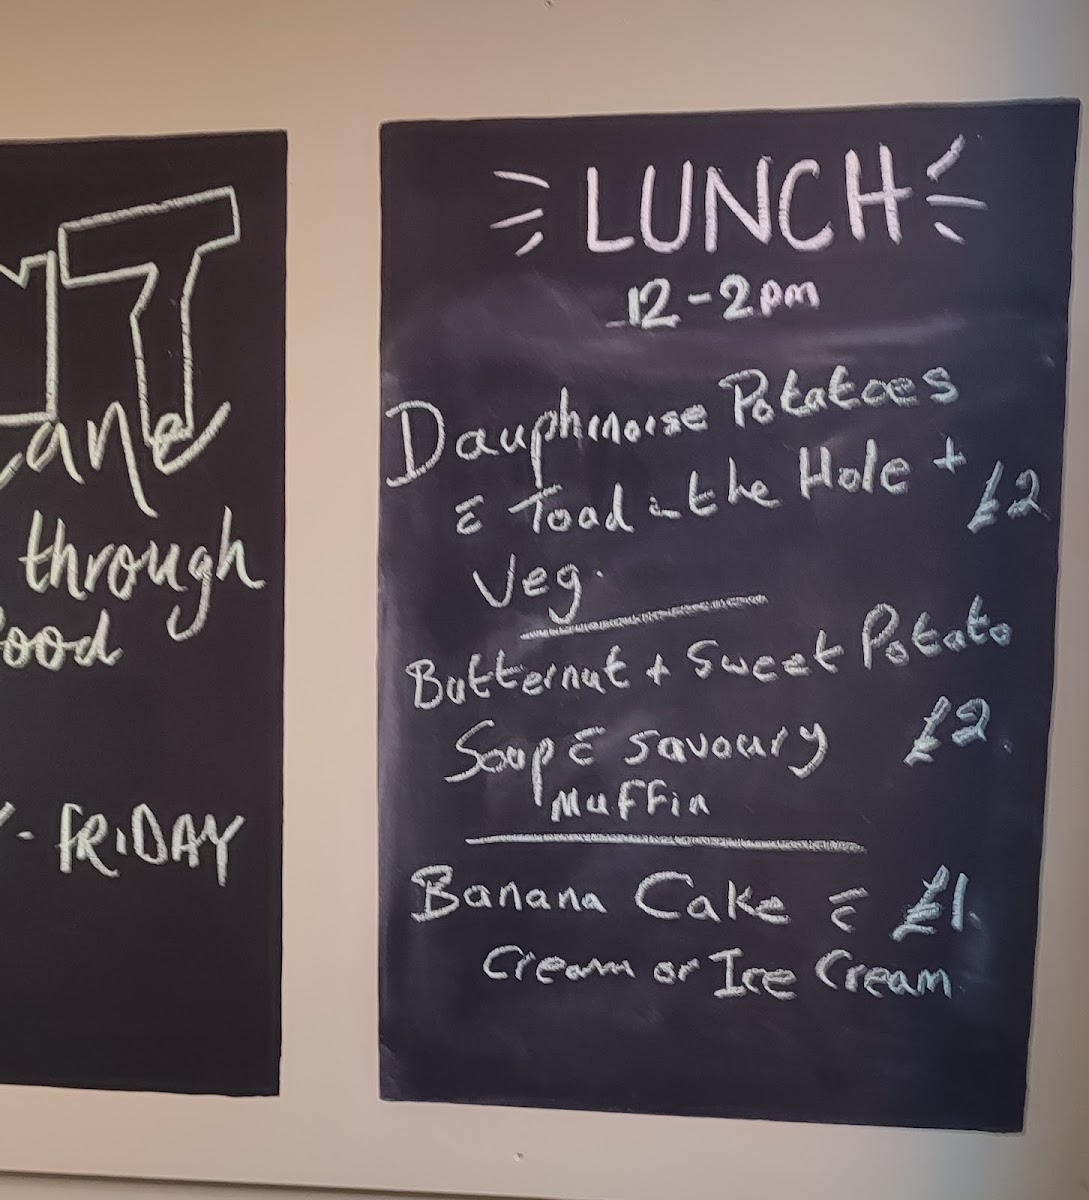 T
ane
through
ood
- FRIDAY
LUNCH
12-2pm
Dauphinoise Potatoes
& Toad in the Hole + £2
Veg.
Butternut + Sweet Potato
Soup & Savoury £2.
Muffin
Banana Cake & £1.
Cream or Ice Cream